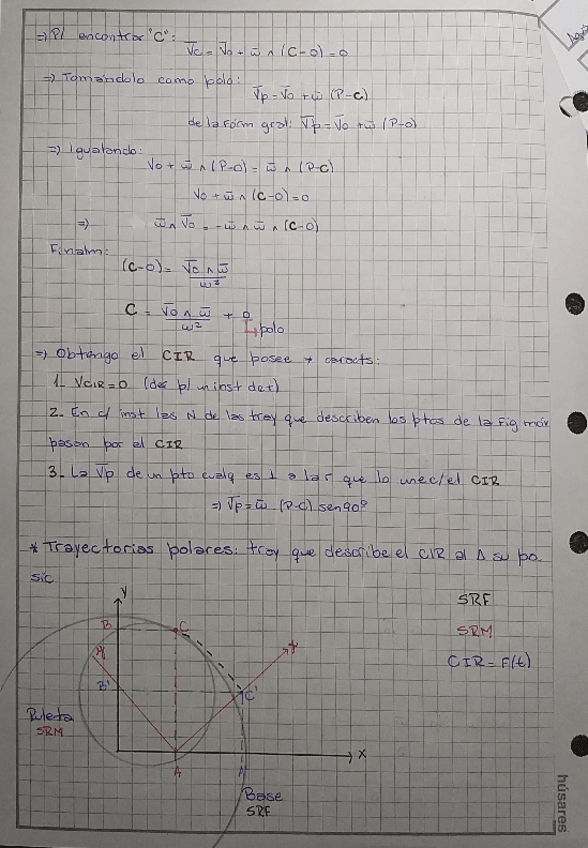 ⇒ P/ encontrar "C":
V̄c = V̄o + ω̄ ∧ (C-O) = 0
⇒ Tomándolo como polo:
V̄p = V̄o + ω̄ (P-C)
de la fórm gral: V̄p = V̄o + ω̄ (P-O)
⇒ Igualando:
Vo + ω̄ ∧ (P-O) = ω̄ ∧ (P-C)
Vo + ω̄ ∧ (C-O) = 0
⇒ ω̄ ∧ V̄o = -ω̄ ∧ ω̄ ∧ (C-O)
Finalm:
(C-O) = V̄c ∧ ω̄ / ω²
C = V̄o ∧ ω̄ / ω² + O
↳ polo
⇒ Obtengo el CIR que posee caracts:
1. VCIR = 0 (de p/ un inst det)
2. En c/ inst las N de las tray que describen los ptos de la Fig móv
pasan por el CIR
3. La V̄p de un pto cualq es ⊥ a la r que lo une c/ el CIR
⇒ V̄p = ω̄ (P-C) sen 90°
* Trayectorias polares: tray que describe el CIR al Δ su po
sic
SRF
SRM
CIR = F(t)
y
B
C
B'
C'
Ruleta
SRM
x
A
A'
Base
SRF
húsares